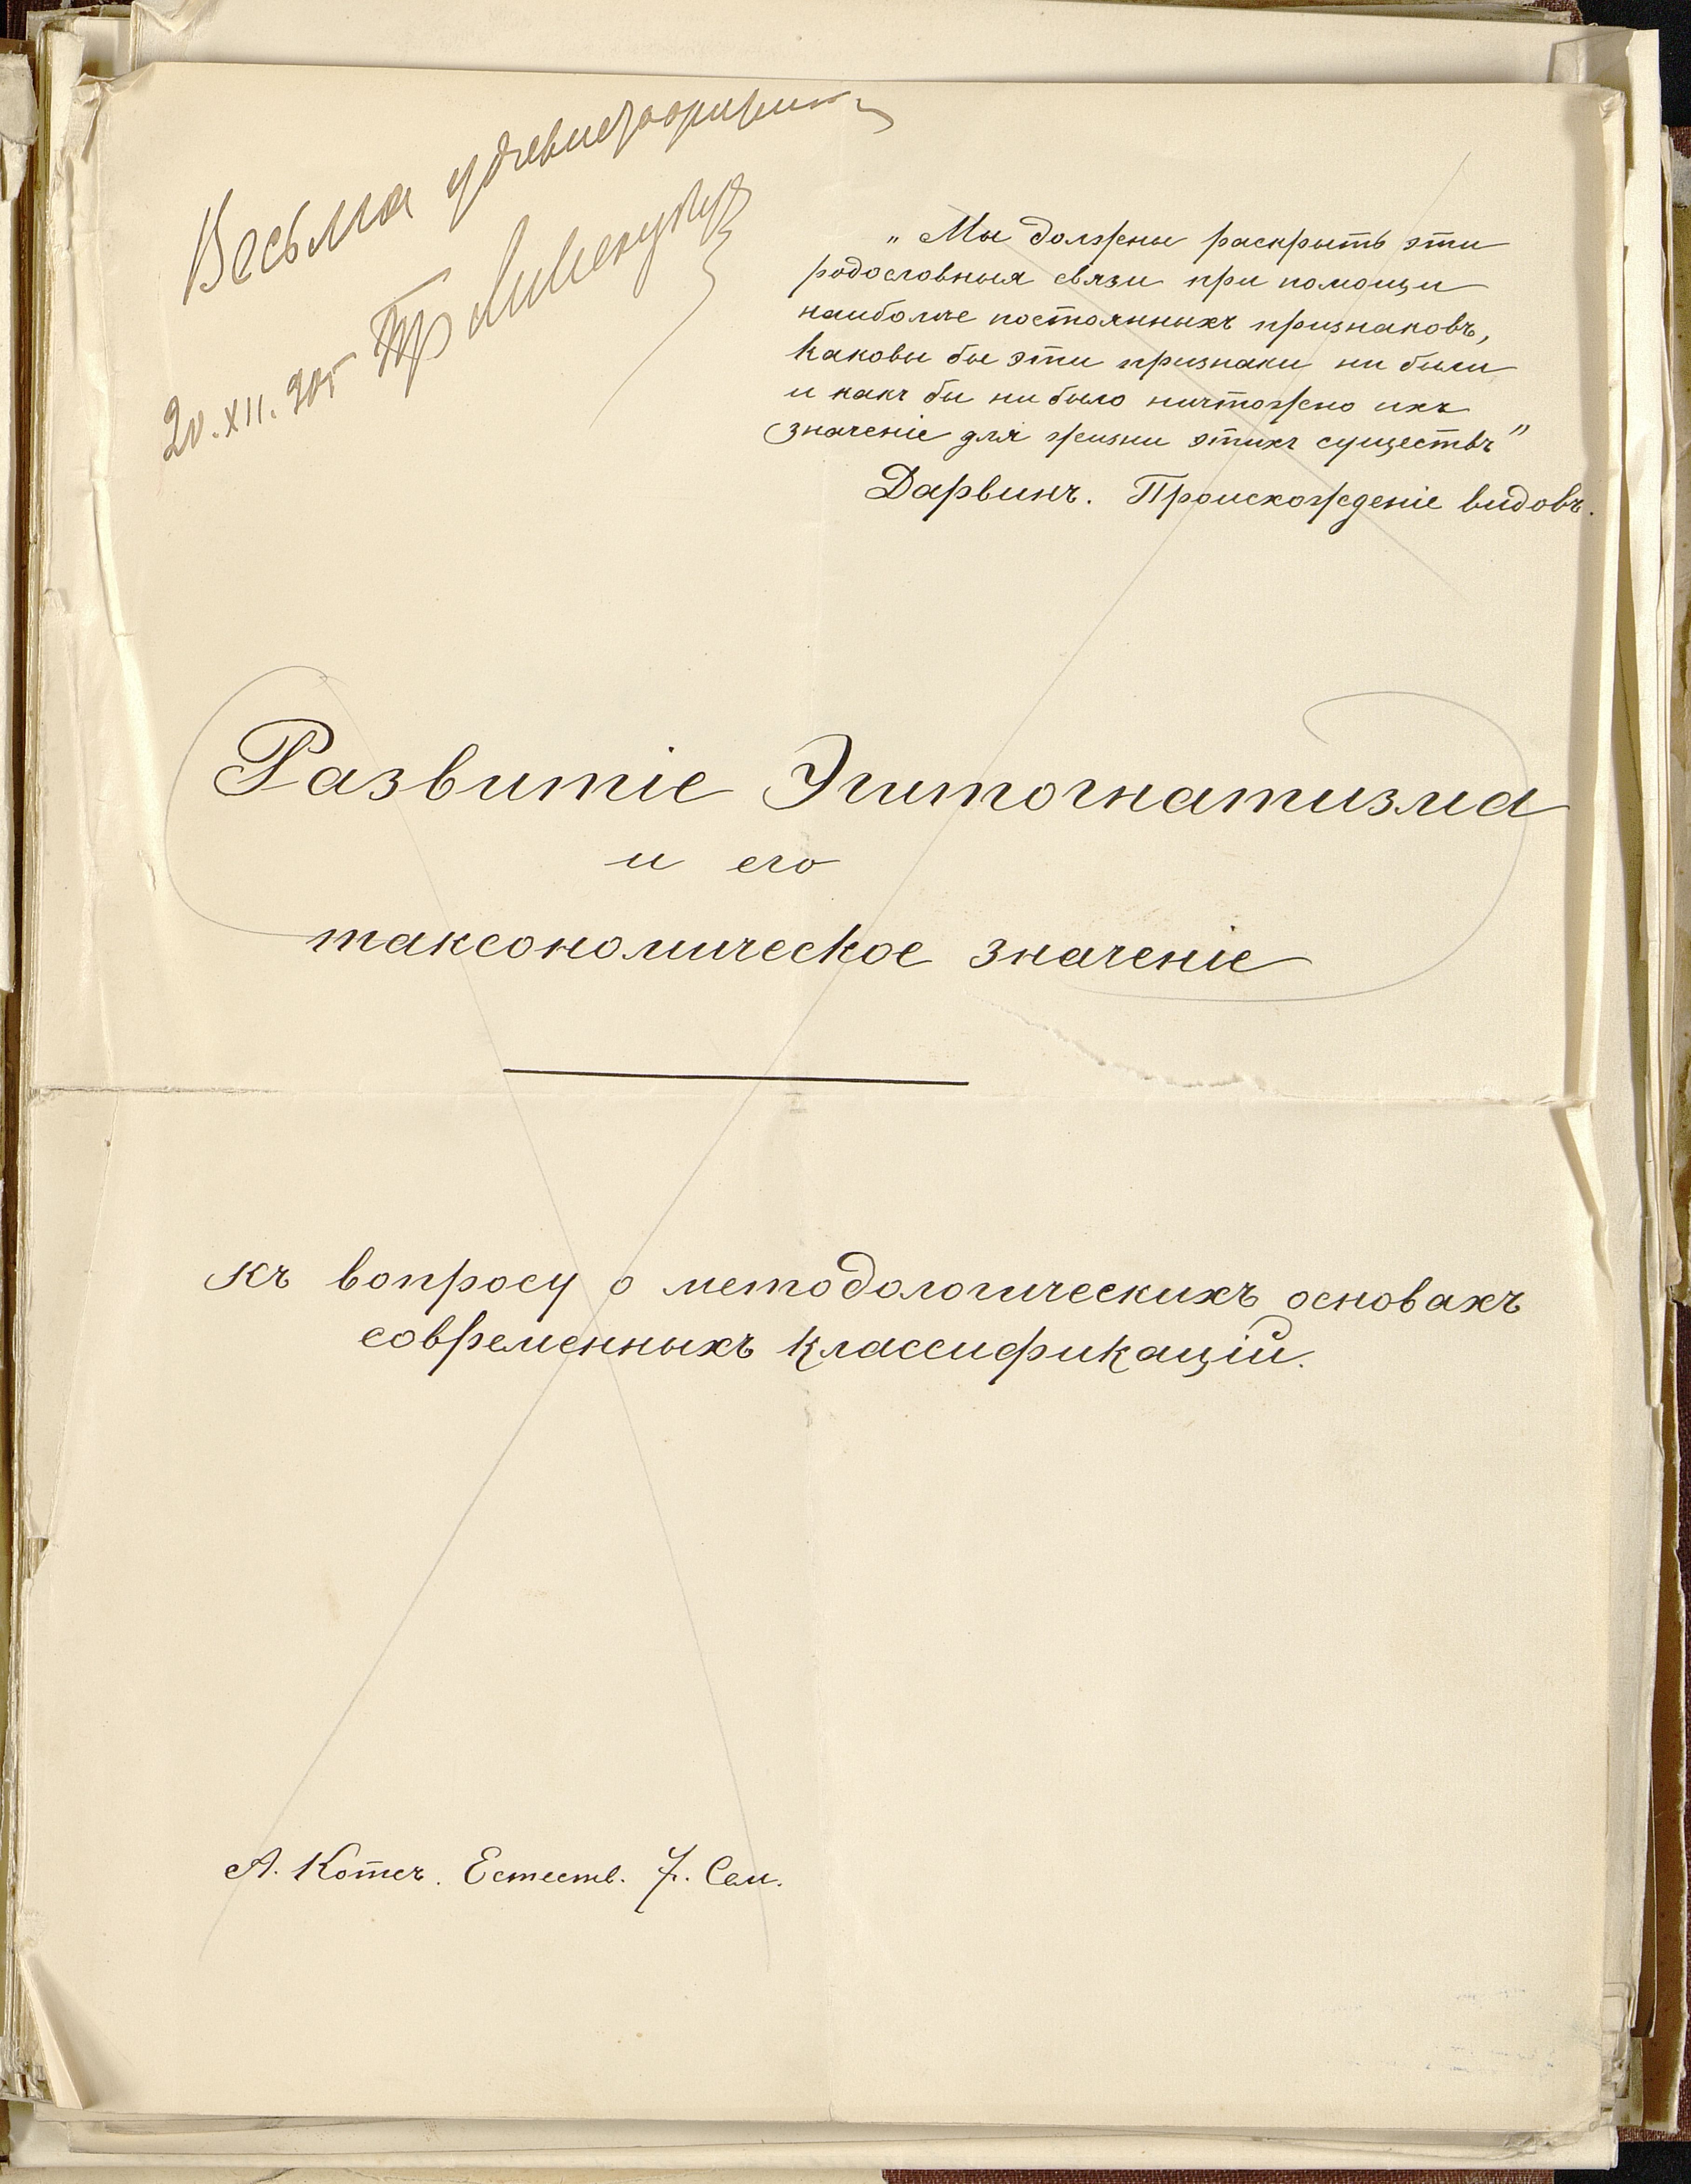 Весьма удовлетворительно
20. XII. 905
„Мы должны раскрыть эти
родословныя связи при помощи
наиболѣе постоянныхъ признаковъ,
каковы бы эти признаки ни были
и какъ бы ни было ничтожно ихъ
значеніе для жизни этихъ существъ"
Дарвинъ. Происхожденіе видовъ.
Развитіе Эгитогнатизма
и его
таксономическое значеніе
къ вопросу о методологическихъ основахъ
современныхъ классификацій.
А. Котсъ. Естеств. 7. Сем.